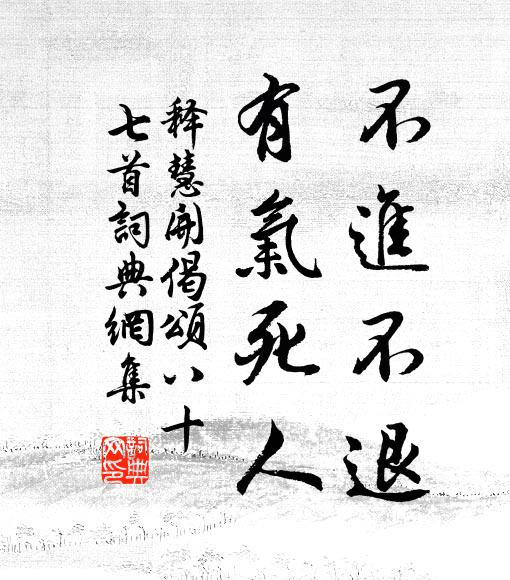 不進不退
有氣死人
释慧開偈頌八十
七首詞典網集
詞典网印